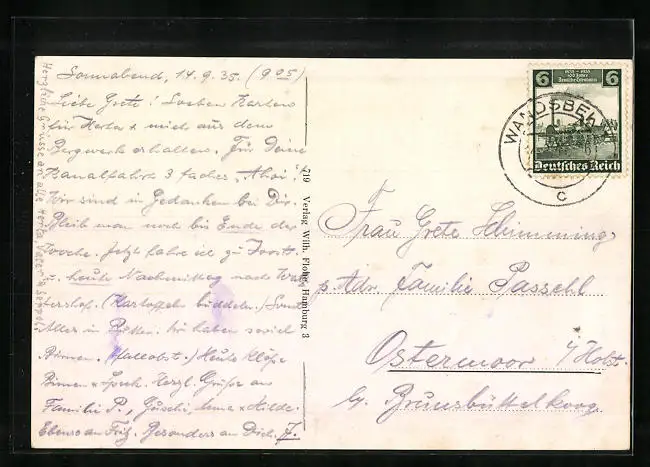 Sonnabend, 14.9.35. (9 05)
Liebe Grete! Soeben Karten
für Herta & mich aus dem
Bergwerk erhalten. Für Deine
Kanalfahrt 3 faches "Ahoi"!
Wir sind in Gedanken bei Dir.
Bleib man noch bis Ende der
Woche. Jetzt fahre ich zu
u. heute Nachmittag nach
(Kartoffeln buddeln.) Sonst
Alles in Butter. Wir haben soviel
Birnen. (Fallobst.) Heute Klöße
Birnen & Speck. Herzl. Grüße an
Familie P., Guschi, & Hilde.
Ebenso an Fritz. Besonders an Dich. J.
Herzliche Grüsse an alle Herta, Vater &
719 Verlag Wilh. Flohr, Hamburg 3
6 6
1835 - 1935
100 Jahre
Deutsche Eisenbahn
Deutsches Reich
WANDSBEK
c
Frau Grete Schimming,
p. Adr. Familie Passehl
Ostermoor i/Holst.
b/. Brunsbüttelkoog.